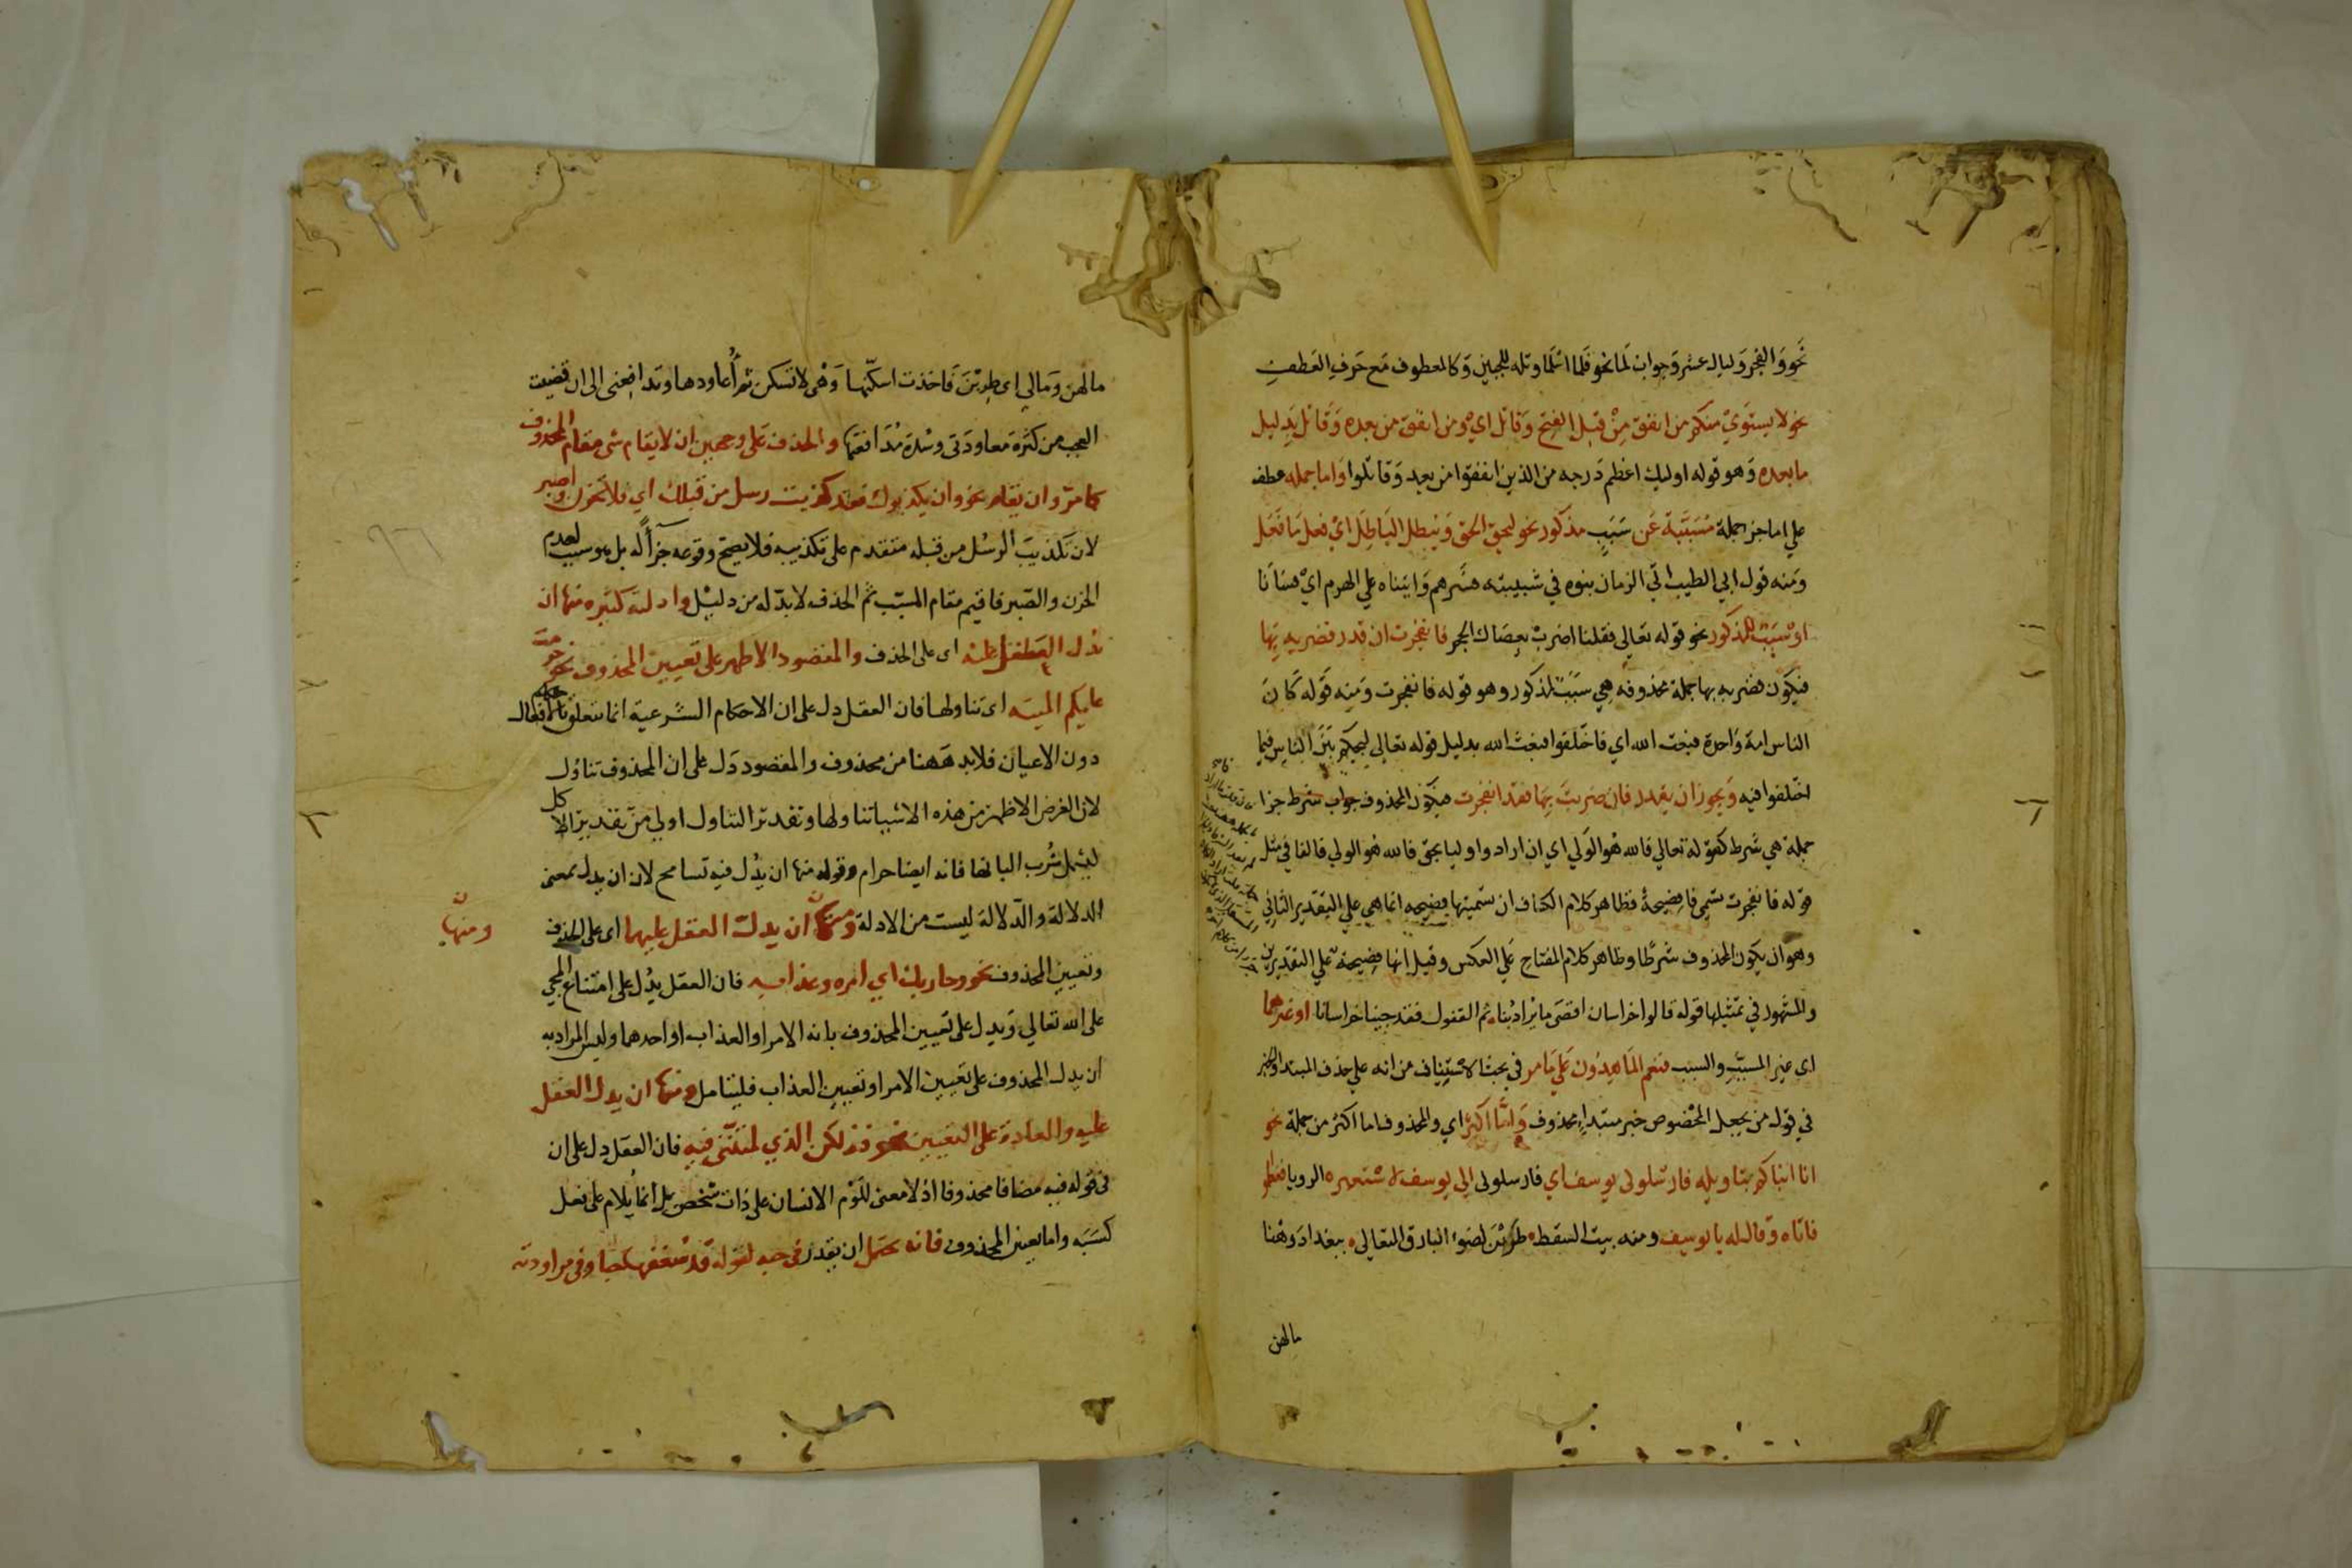 نحو والفجر وليال عشر وجواب لما نحو فلما اسلما وتله للجبين وكالمعطوف مع حرف العطف
نحو لا يستوي منكم من انفق من قبل الفتح وقاتل اي ومن انفق من بعده وقاتل بدليل
ما بعده وهو قوله اوليك اعظم درجه من الذين انفقوا من بعد وقاتلوا واما جمله عطف
علي اما جز جملة مسببة عن سبب مذكور نحو ليحق الحق ويبطل الباطل اي فعل ما فعل
ومنه قول ابي الطيب اتي الزمان بنوه في شبيبته فسرهم واتيناه علي الهرم اي فساءنا
او سبب لمذكور نحو قوله تعالي فقلنا اضرب بعصاك الحجر فانفجرت ان قدر فضربه بها
فيكون فضربه بها جملة محذوفه هي سبب لمذكور وهو قوله فانفجرت ومنه قوله كان
الناس امة واحدة فبعث الله اي فاختلفوا فبعث الله بدليل قوله تعالي ليحكم بين الناس فيما
اختلفوا فيه ويجوز ان يقدر فان ضربت بها فقد انفجرت فيكون المحذوف جواب شرط جزا
جملة هي شرط كقوله تعالي فالله هو الولي اي ان اراد واوليا بحق فالله هو الولي فالفا في مثل
قوله فانفجرت تسمي فا فصيحة فظاهر كلام الكشاف ان تسميتها فصيحه انما هي علي التقدير الثاني
وهو ان يكون المحذوف شرطا وظاهر كلام المفتاح علي العكس وقيل انها فصيحة علي التقديرين
والمشهور في تمثيلها قوله قالوا خراسان اقصى ما يراد بنا ثم القفول فقد جينا خراسانا او غيرهما
اى غير المسبب والسبب فنعم الماهدون علي ما مر في بحث الاستيناف من انه علي حذف المبتدا والخبر
في قول من يجعل المخصوص خبر مبتدا محذوف واما اكثر اي والمحذوف اما اكثر من جملة نحو
انا انبئكم بتاويله فارسلون يوسف اي فارسلونى الي يوسف لاستعبره الرويا ففعلوا
فاتاه وقال له يا يوسف ومنه بيت السقط طربن لضوء البارق المتعالي ببغداد وهنا
مالهن
مالهن ومالي اى طربن فاخذت اسكنها وهى لا تسكن ثم أعاودها وتدافعنى الى ان قضيت
العجب من كثرة معاودتى وشدة مدافعتها والحذف على وجهين ان لا يقام شى مقام المحذوف
كما مر وان يقام نحو وان يكذبوك فقد كذبت رسل من قبلك اي فلا تحزن واصبر
لان تكذيب الرسل من قبله متقدم على تكذيبه فلا يصح وقوعه جزآ له بل هو سبب لعدم
الحزن والصبر فاقيم مقام المسبب ثم الحذف لا بد له من دليل وادلته كثيره منها ان
يدل العقل عليه اى على الحذف والمقصود الاظهر على تعيين المحذوف نحو حرمت
عليكم الميته اى تناولها فان العقل دل على ان الاحكام الشرعية انما تتعلق بالافعال
دون الاعيان فلا بد ههنا من محذوف والمقصود دل على ان المحذوف تناول
لان الغرض الاظهر من هذه الاشيا تناولها وتقدير التناول اولي من تقدير الاكل
ليشمل شرب البانها فانه ايضا حرام وقوله منها ان يدل فيه تسامح لان ان يدل بمعنى
الدلالة والدلالة ليست من الادلة ومنها ان يدل العقل عليهما اى على الحذف
ومنها
وتعيين المحذوف نحو وجا ربك اي امره وعذابه فان العقل يدل على امتناع المجي
على الله تعالي ويدل على تعيين المحذوف بانه الامر او العذاب او احدهما وليس المراد به
ان يدل المحذوف على تعيين الامر او تعيين العذاب فليتامل ومنها ان يدل العقل
عليه والعادة على التعيين نحو فذلكن الذي لمتننى فيه فان العقل دل على ان
في قوله فيه مضافا محذوفا اذ لا معنى للوم الانسان على ذات شخص بل انما يلام على فعل
كسبه واما تعين المحذوف فانه يحتمل ان يقدر في حبه لقوله قد شغفها حبا وفى مراودته